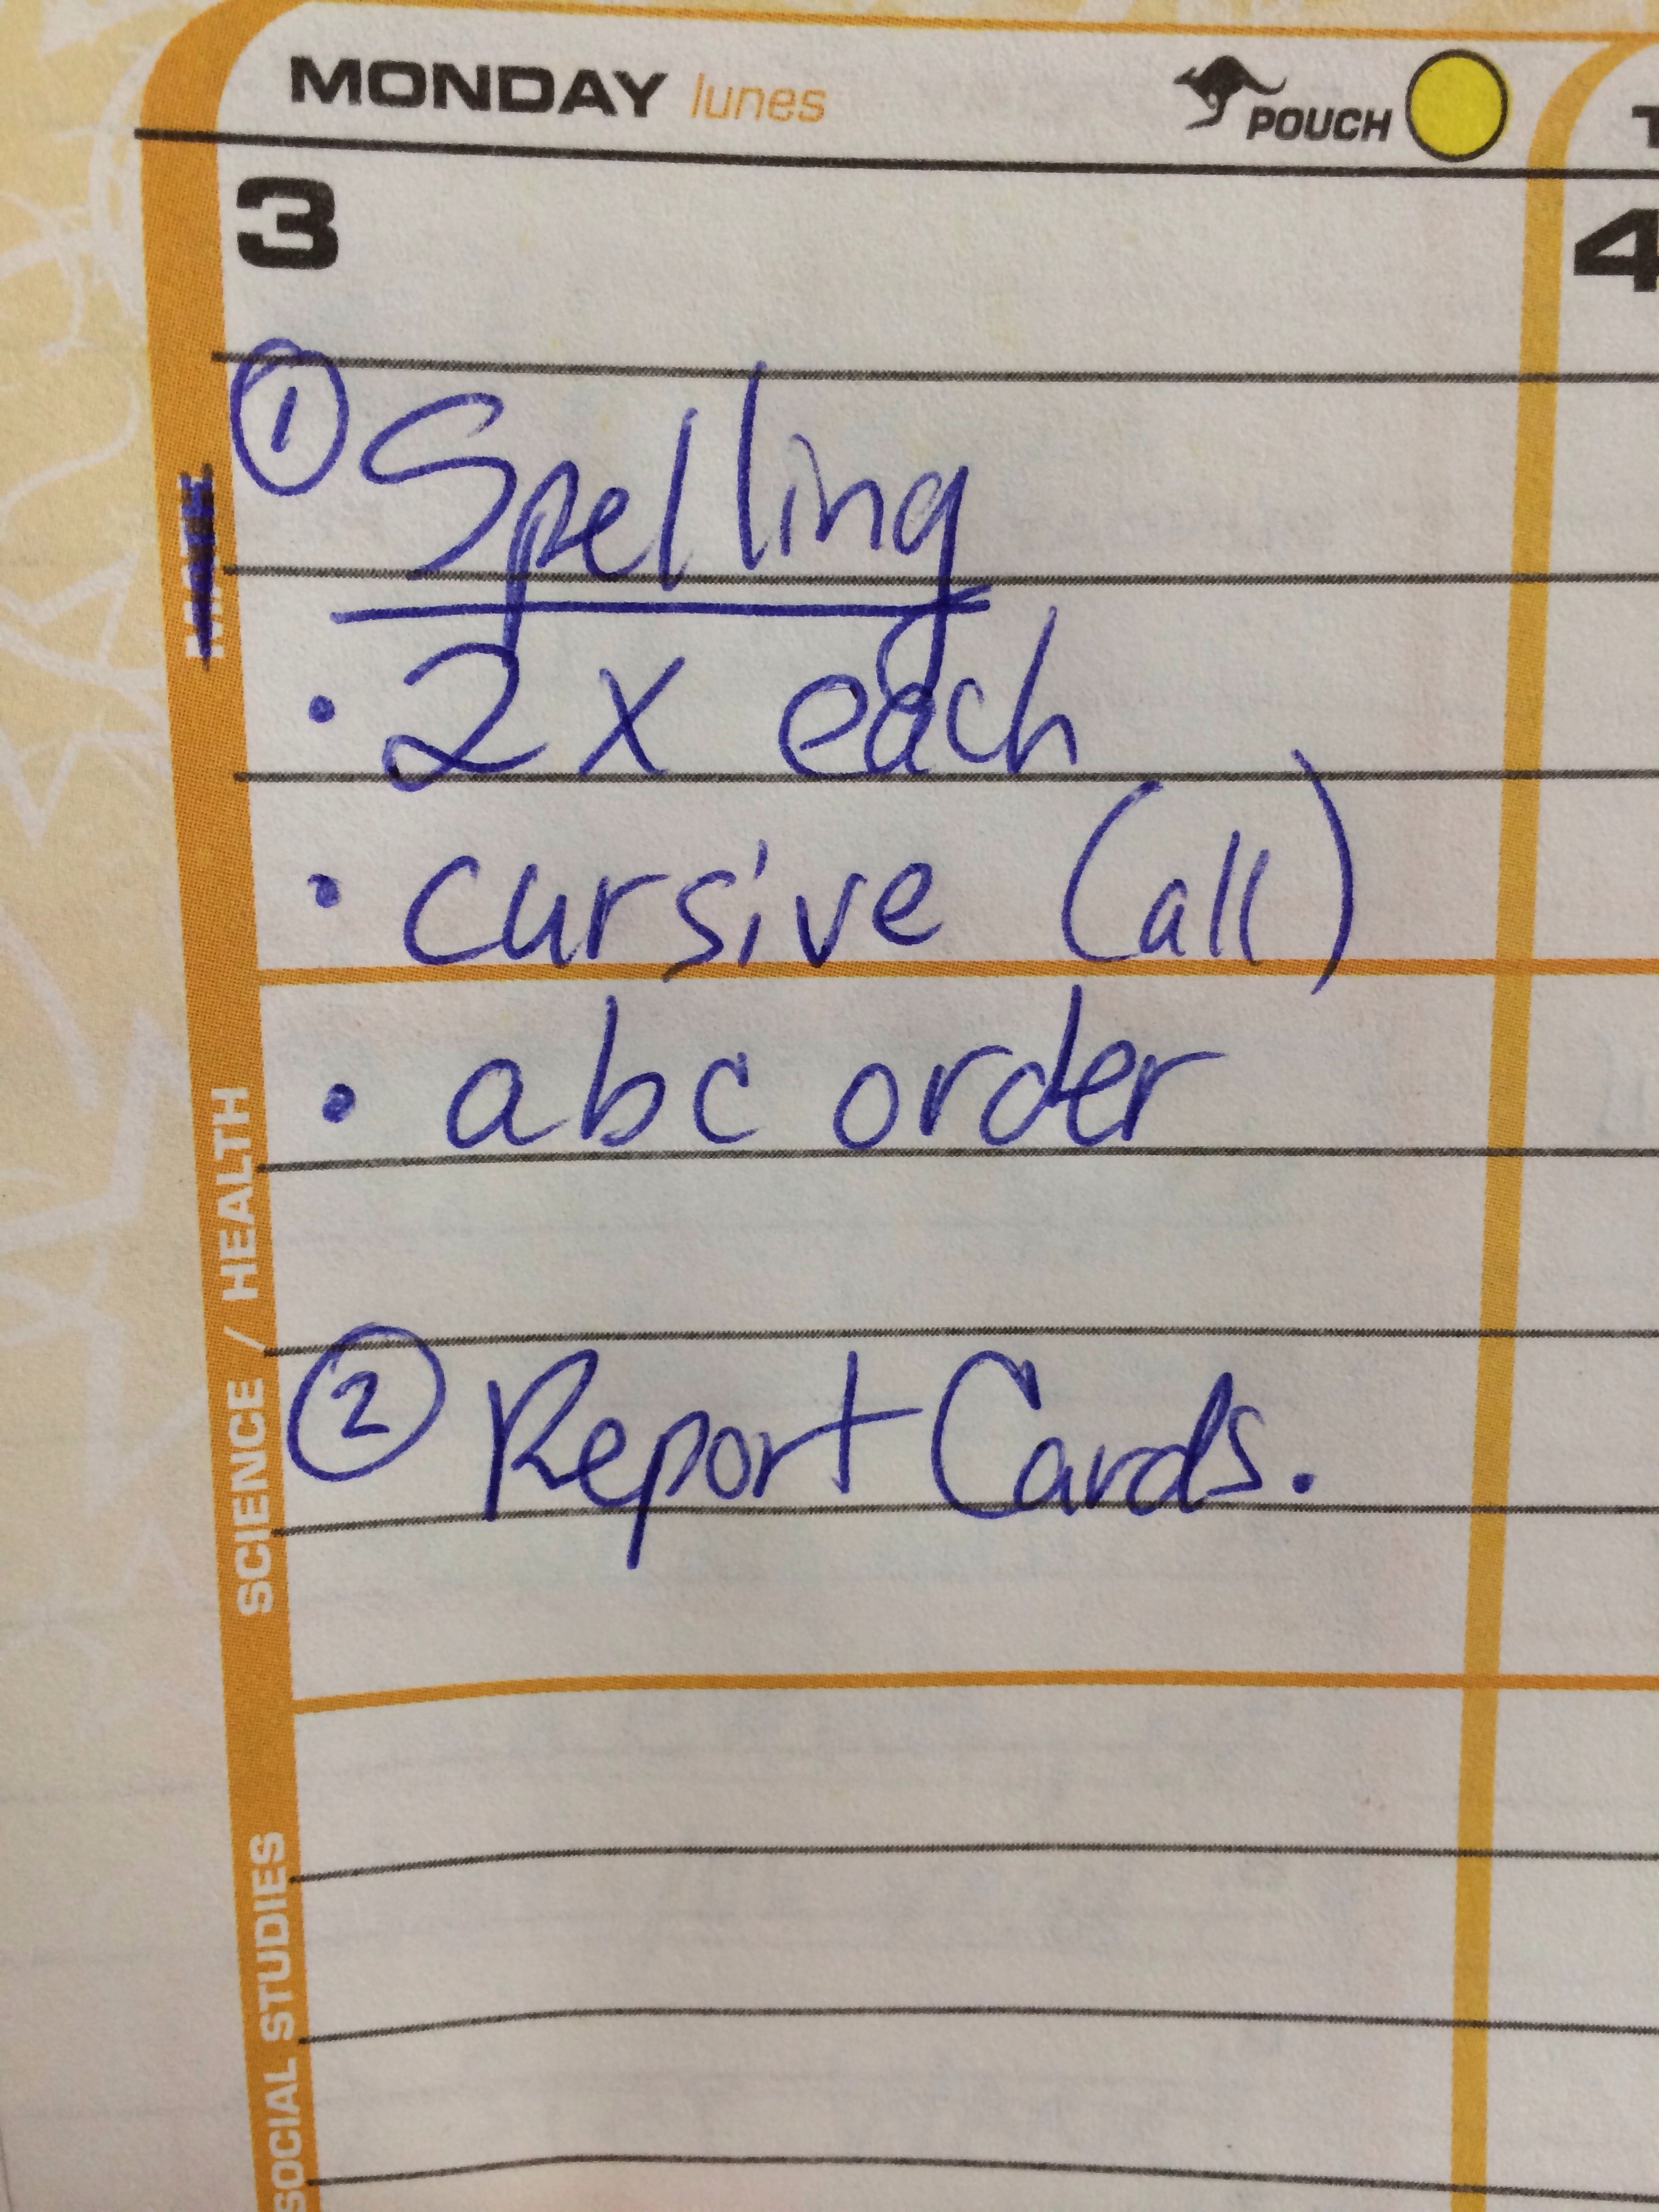 MONDAY lunes POUCH T
3 4
① Spelling
MATH
• 2 x each
• cursive (all)
• abc order
SCIENCE / HEALTH
② Report Cards.
SOCIAL STUDIES